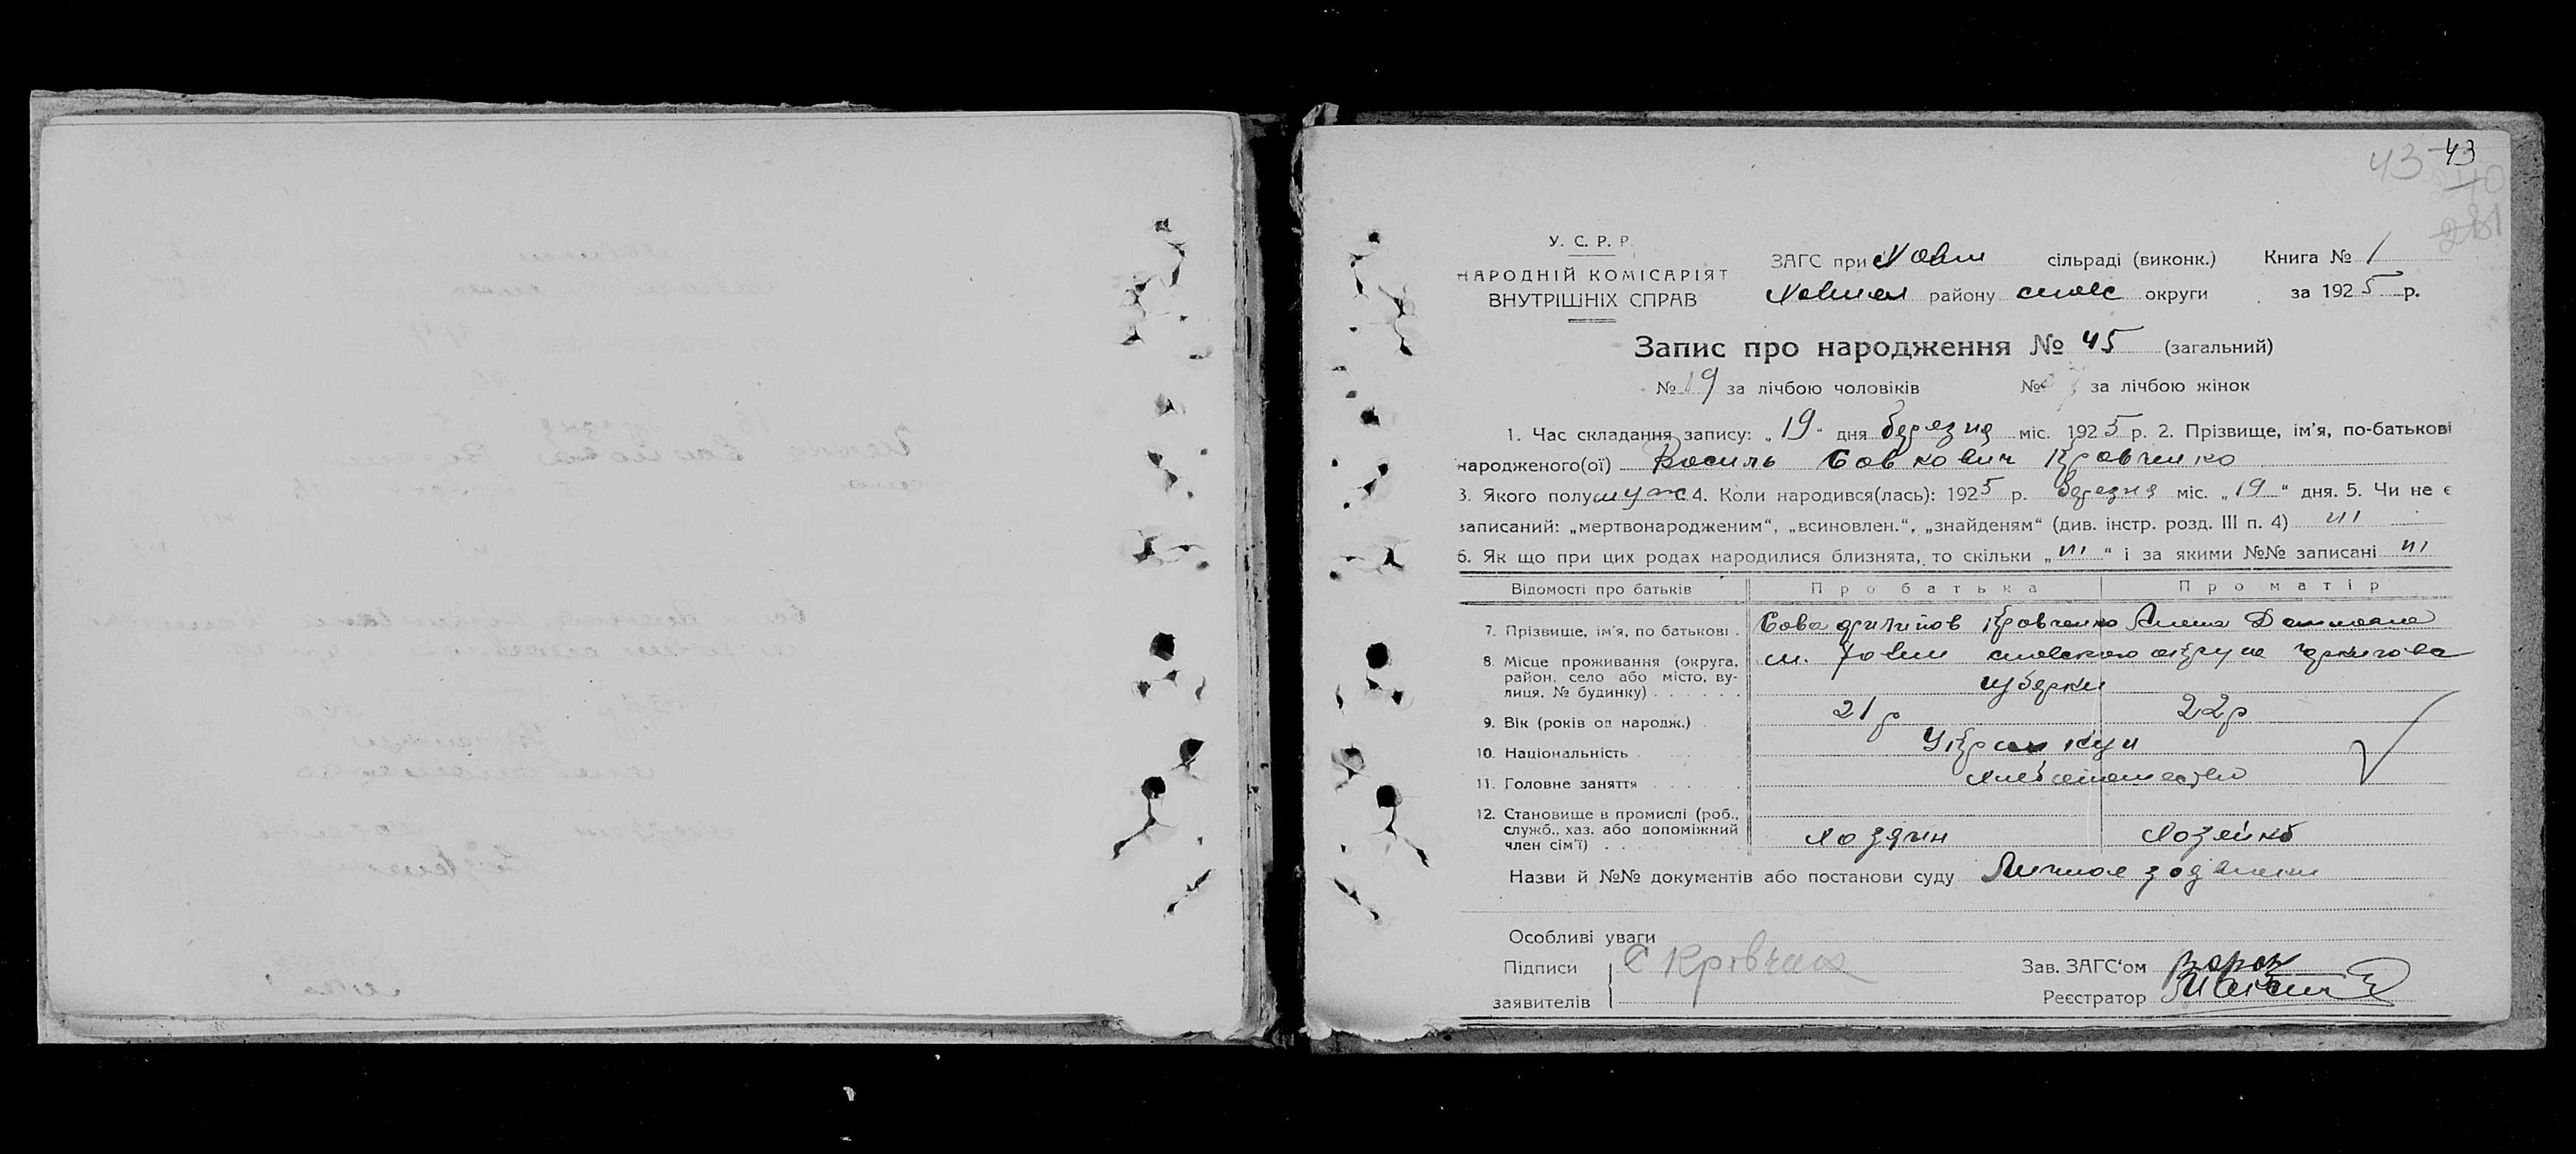 43 43
40
281
У. С. Р. Р.
НАРОДНІЙ КОМІСАРІЯТ
ВНУТРІШНІХ СПРАВ
ЗАГС при Ховм сільраді (виконк.) Книга № 1
району округи за 1925 р.
Запис про народження № 45 (загальний)
№ 19 за лічбою чоловіків № за лічбою жінок
1. Час складання запису: „19“ дня березня міс. 1925 р. 2. Прізвище, ім'я, по-батькові
народженого(ої) Василь Савкович Кравченко
3. Якого полу муж 4. Коли народився(лась): 1925 р. березня міс. „19“ дня. 5. Чи не є
записаний: „мертвонародженим“, „всиновлен.“, „знайденям“ (див. інстр. розд. III п. 4) ні
6. Як що при цих родах народилися близнята, то скільки „ні“ і за якими №№ записані ні
Відомості про батьків Про батька Про матір
7. Прізвище, ім'я, по батькові . Сава Кравченко
8. Місце проживання (округа,
район, село або місто, ву-
лиця, № будинку) . . . . . . м. округа
губерни
9. Вік (років од народж.) 21 р 22 р
10. Національність Украинци
11. Головне заняття . . . . . .
12. Становище в промислі (роб.,
служб., хаз. або допоміжний
член сім'ї) . . . . . . . . . Хозяин Хозяйка
Назви й №№ документів або постанови суду Личное
Особливі уваги
Підписи С Кравченко Зав. ЗАГС'ом
заявителів Реєстратор